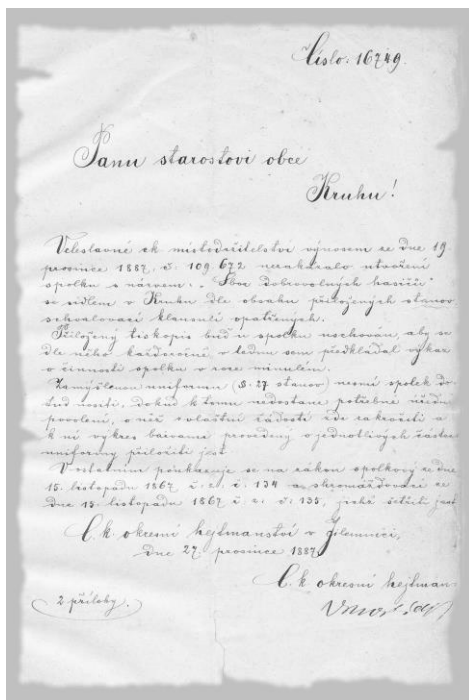 Číslo: 16749.
Panu starostovi obce
Kruhu!
Veleslavné ck místodržitelství výnosem ze dne 19.
prosince 1887, č. 109.672 nezakázalo utvoření
spolku s názvem: „Sbor dobrovolných hasičů“
se sídlem v Kruhu dle obsahu přiložených stanov
schvalovací klausulí opatřených.
Přiložený tiskopis budiž u spolku uschován, aby se
dle něho každoročně v lednu sem předkládal výkaz
o činnosti spolku v roce minulém.
Zamýšlenou uniformu (§. 27 stanov) nesmí spolek do-
tud nositi, dokud k tomu nedostane potřebné úřední
povolení, o něž zvláštní žádostí zde zakročiti a
k ní výkres barvami provedený o jednotlivých částech
uniformy přiložiti jest.
V ostatním poukazuje se na zákon spolkový ze dne
15. listopadu 1867 č. ř. z. 134 a shromažďovací ze
dne 15. listopadu 1867 č. ř. z. 135, jichž šetřiti jest.
C. k. okresní hejtmanství v Jilemnici,
dne 27. prosince 1887.
C. k. okresní hejtman:
2 přílohy.